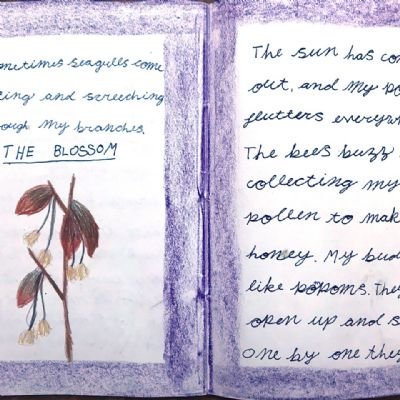 sometimes seagulls come
and screeching
my branches.
THE BLOSSOM
The sun has
out, and my
flutters
The bees buzz
collecting my
pollen to
honey. My
like popoms. They
open up and
one by one they